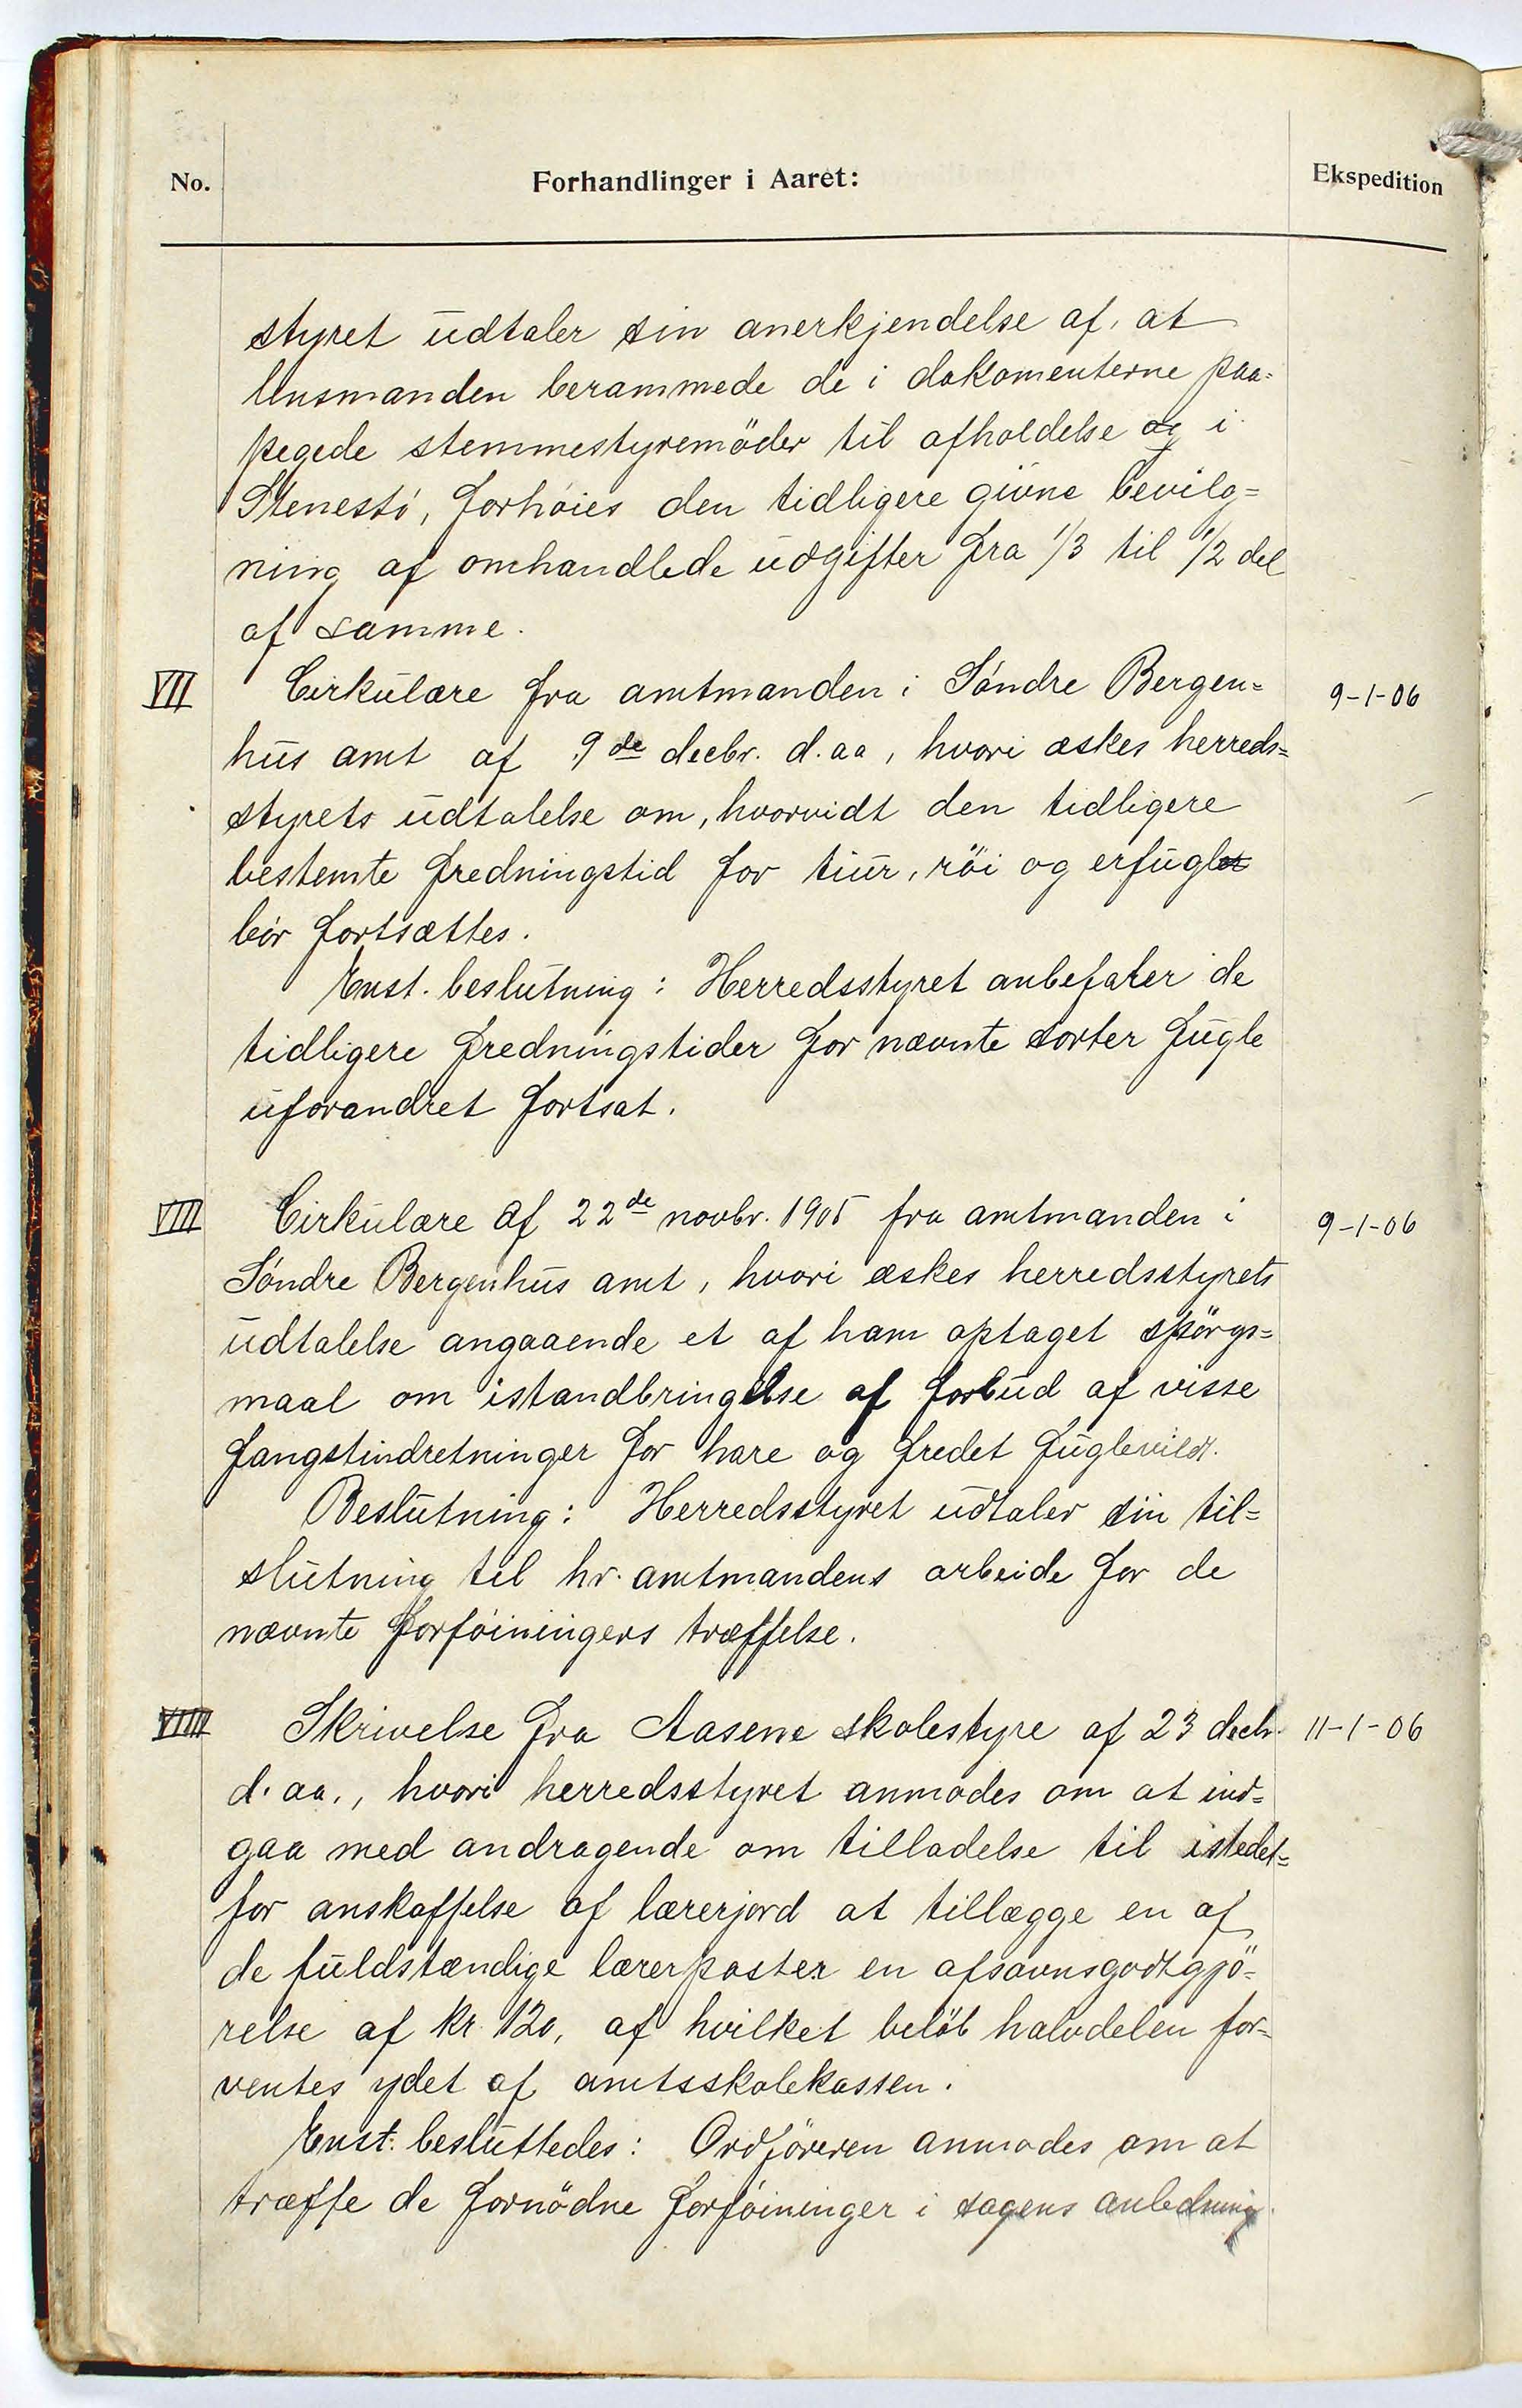 No. Forhandlinger i Aaret: Ekspedition
styret udtaler sin anerkjendelse af, at
lensmanden berammede de i dokumenterne paa=
pegede stemmestyremöder til afholdelse og i
Stenestö, forhöies den tidligere givne bevilg=
ning af omhandlede udgifter fra 1/3 til 1/2 del
af samme.
VII Cirkulære fra amtmanden i Söndre Bergen= 9-1-06
hus amt af 9de decbr. d. aa, hvori æskes herreds=
styrets udtalelse om, hvorvidt den tidligere
bestemte fredningstid for tiur, röi og erfugl
bör fortsættes.
Enst. beslutning: Herredsstyret anbefaler de
tidligere fredningstider for nævnte sorter fugle
uforandret fortsat.
VIII Cirkulære af 22de novbr. 1905 fra amtmanden i 9-1-06
Söndre Bergenhus amt, hvori æskes herredsstyrets
udtalelse angaaende et af ham optaget spörgs=
maal om istandbringelse af forbud af visse
fangstindretninger for hare og fredet fuglevildt.
Beslutning: Herredsstyret udtaler sin til=
slutning til hr. amtmandens arbeide for de
nævnte forföiningers træffelse.
VIIII Skrivelse fra Aasene skolestyre af 23 decbr. 11-1-06
d. aa., hvori herredsstyret anmodes om at ind=
gaa med andragende om tilladelse til istedet=
for anskaffelse af lærerjord at tillægge en af
de fuldstændige lærerposter en afsavnsgodtgjö=
relse af kr. 120, af hvilket belöb halvdelen for=
ventes ydet af amtsskolekassen.
Enst. besluttedes: Ordföreren anmodes om at
træffe de fornödne forföininger i sagens anledning.